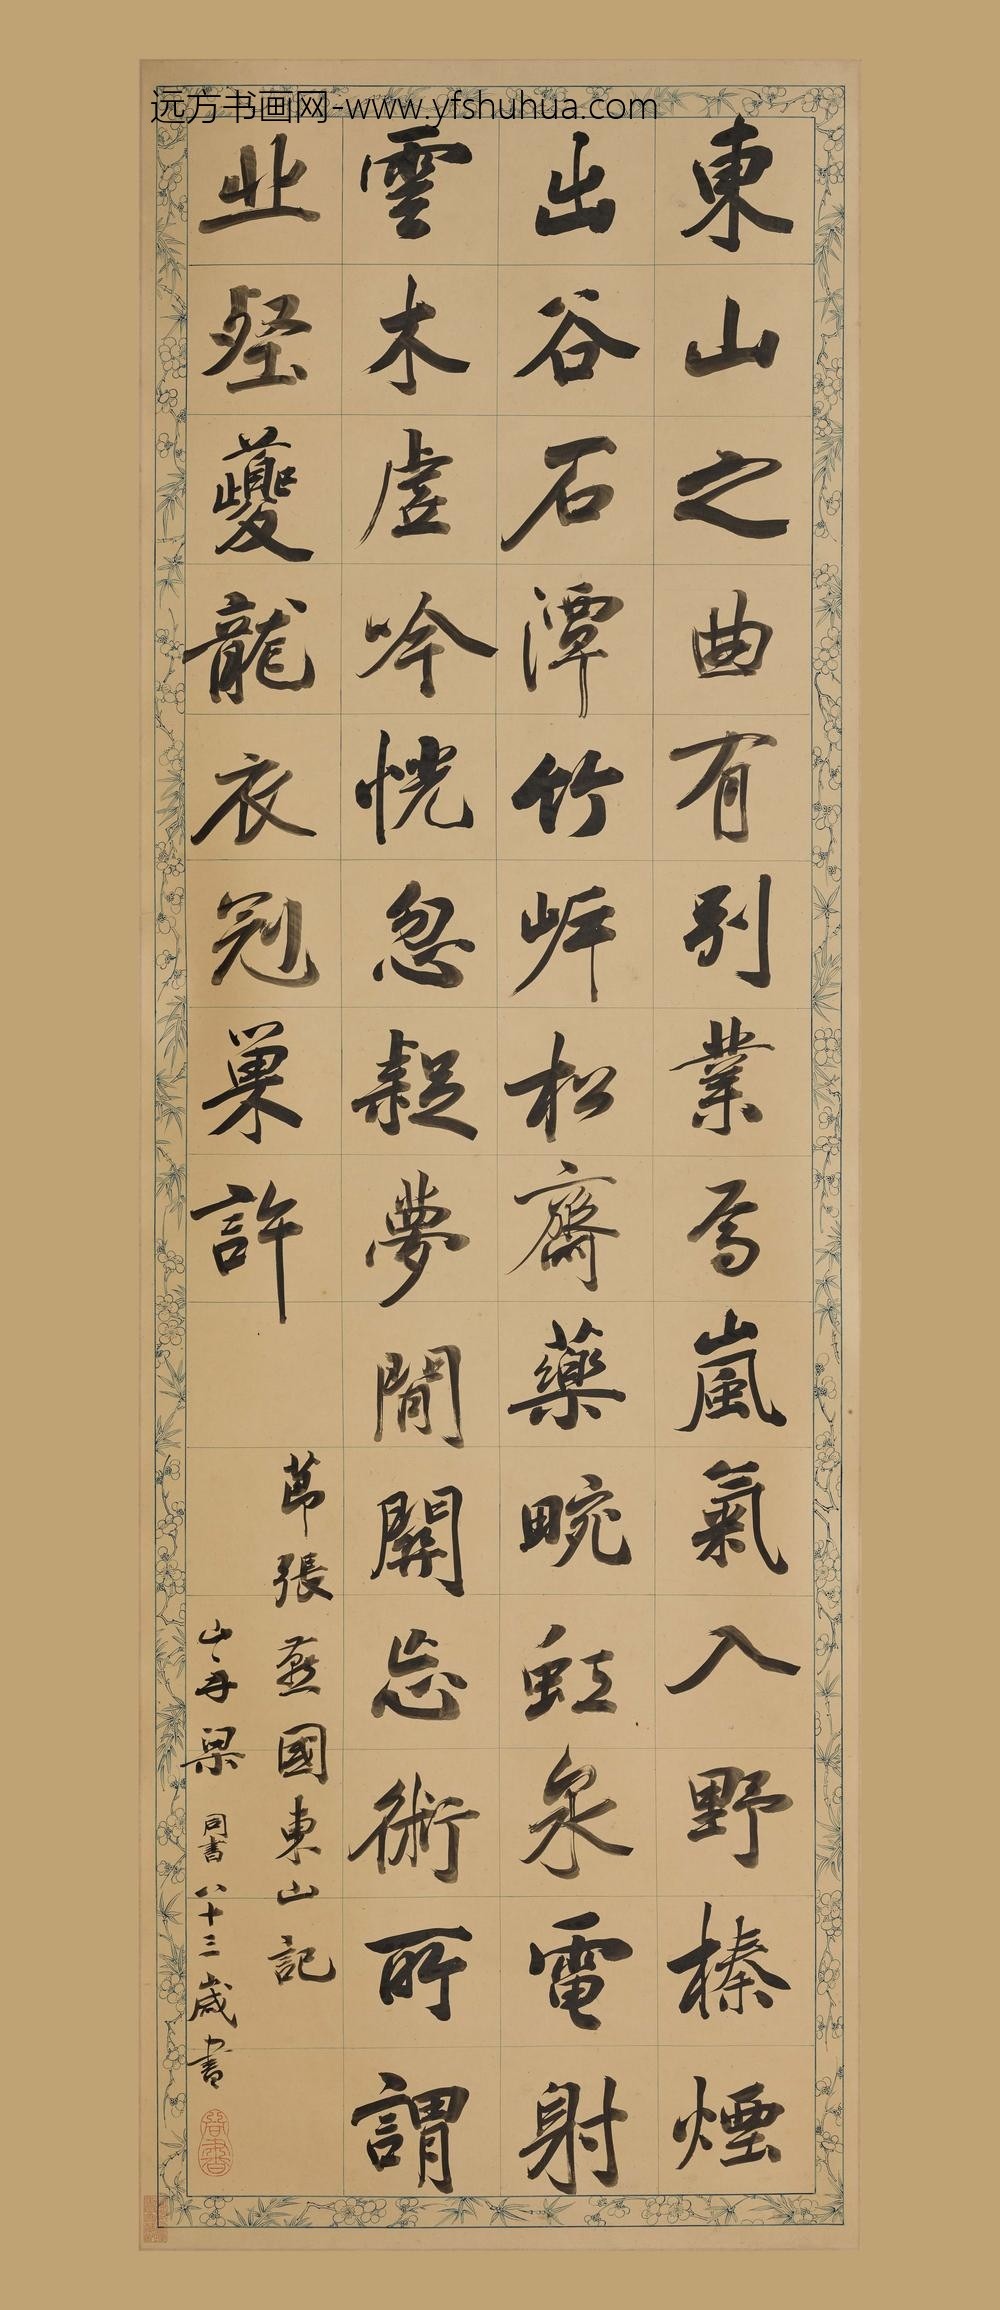 远方书画网-www.yfshuhua.com
東山之曲有別業焉嵐氣入野榛煙
出谷石潭竹岸松齋藥畹虹泉電射
雲木虛吟恍忽疑夢閒關忘術所謂
丘壑夔龍衣冠巢許
節張燕國東山記
山舟梁同書八十三歲書